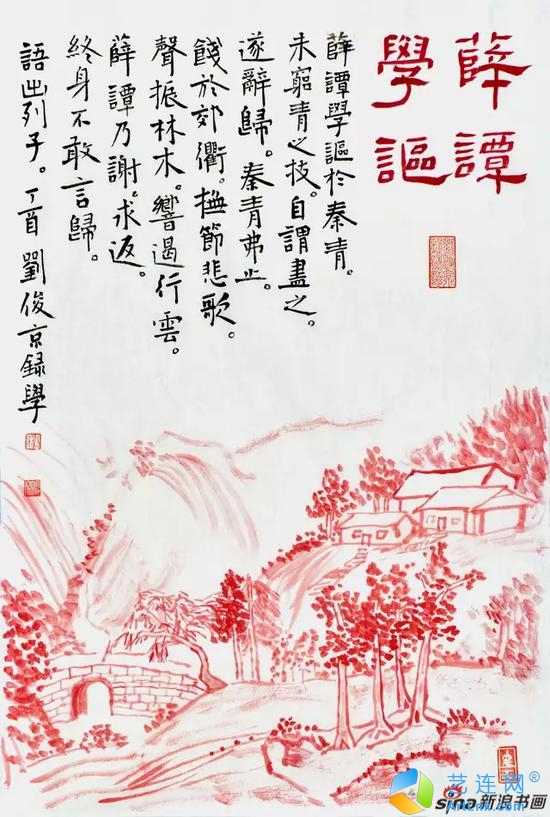 薛譚
學謳
薛譚學謳於秦青。
未窮青之技。自謂盡之。
遂辭歸。秦青弗止。
餞於郊衢。撫節悲歌。
聲振林木。響遏行雲。
薛譚乃謝。求返。
終身不敢言歸。
語出列子。丁酉 劉俊京録學
艺连网®
sina新浪书画